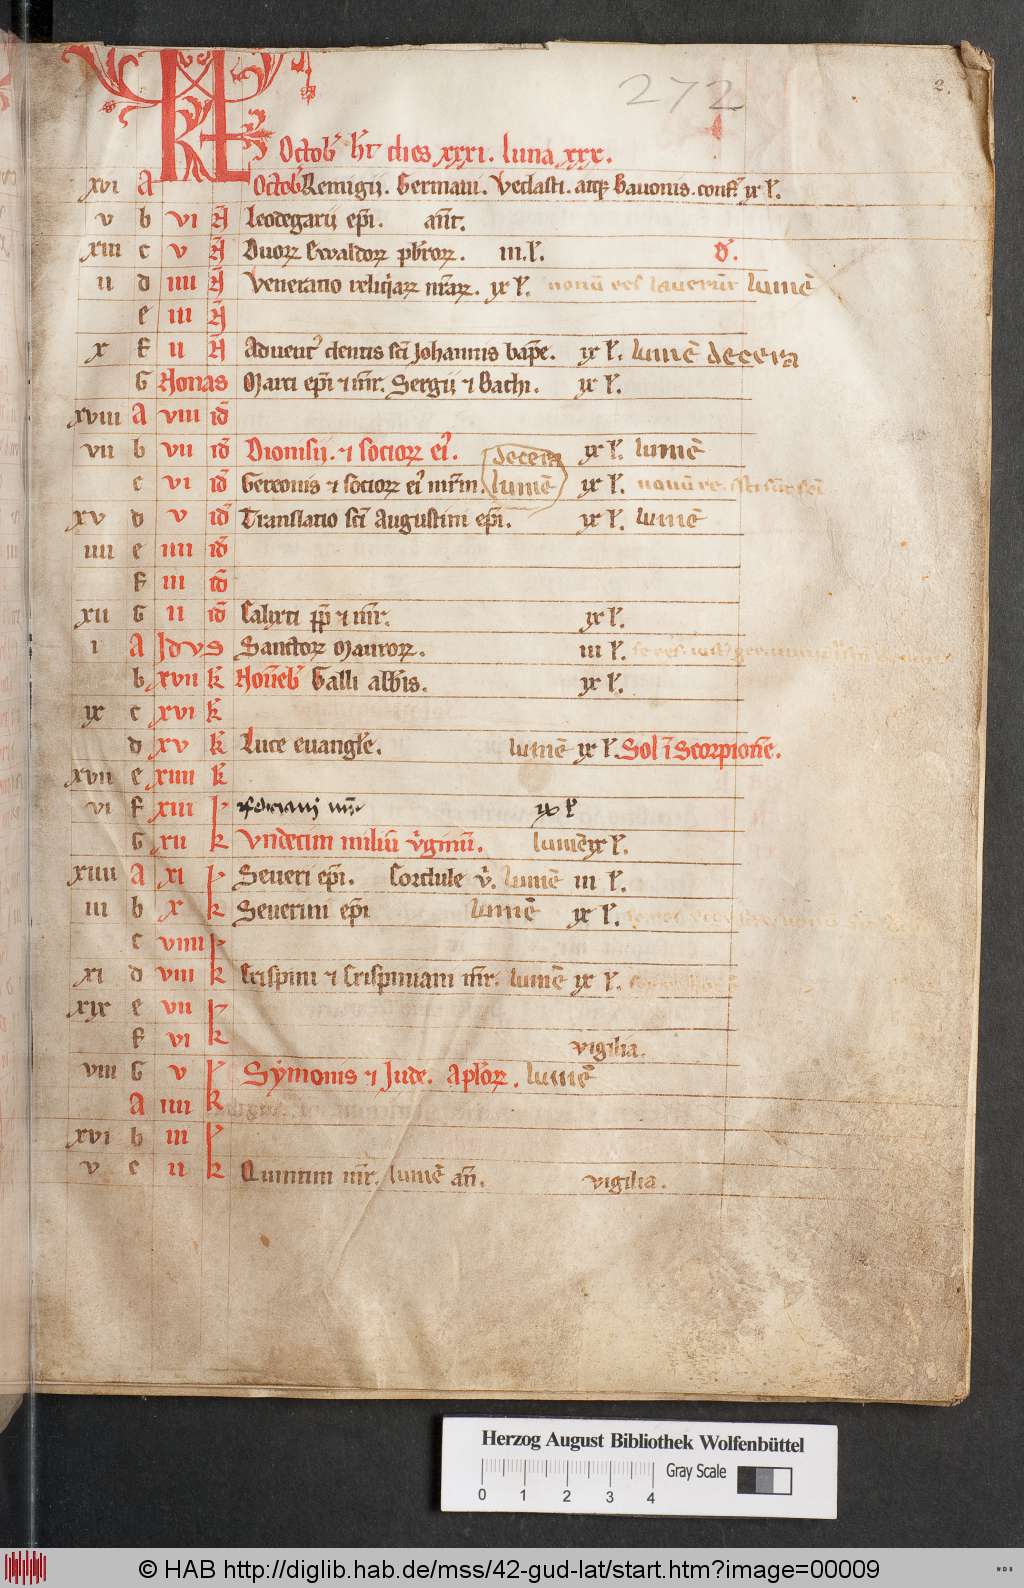 272
2.
KL Octob' ht dies xxxi. luna xxx.
xvi A Octob' Remigii. Germani. Vedasti. atq; Bauonis. conf. ix l'.
v b vi N̄ Leodegarii ep̄i. an̄t.
xiii c v N̄ Duoꝝ Ewaldoꝝ pb'roꝝ. iii. l'. D'.
ii d iiii N̄ Veneratio reliq̄iaꝝ nr̄aꝝ. ix l'. lumē
e iii N̄
x F ii N̄ Aduent' dentis sc̄i Johannis bap̄te. ix l'. lumē de cera
G Nonas Marci ep̄i ⁊ m̄r. Sergii ⁊ Bachi. ix l'.
xviii A viii id'
vii b vii id' Dionisii. ⁊ socioꝝ ei'. ix l'. lumē
de cera
c vi id' Gereonis ⁊ socioꝝ ei' mr̄m. lumē ix l'.
xv d v id' Translatio sc̄i Augustini ep̄i. ix l'. lumē
iiii e iiii id'
F iii id'
xii G ii id' Calixti pp̄ ⁊ m̄r. ix l'.
i A Idus Sanctoꝝ Mauroꝝ. iii l'.
b xvii k' Nouēb' Galli abb̄is. ix l'.
ix c xvi k'
d xv k' Luce euangl'e. lumē ix l'. Sol ī Scorpione.
xvii e xiiii k'
vi F xiii k ix l'
G xii k Vndecim miliū v'ginū. lumē ix l'.
xiiii A xi k Seueri ep̄i. Cordule v'. lumē iii l'.
iii b x k Seuerini ep̄i lumē ix l'.
c viiii k
xi d viii k Crispini ⁊ Crispiniani m̄r. lumē ix l'.
xix e vii k
F vi k vigilia.
viii G v k Symonis ⁊ Jude. Apl'oꝝ. lumē
A iiii k
xvi b iii k
v c ii k Quintini m̄r. lumē an̄. vigilia.
Herzog August Bibliothek Wolfenbüttel
Gray Scale
0 1 2 3 4
© HAB http://diglib.hab.de/mss/42-gud-lat/start.htm?image=00009